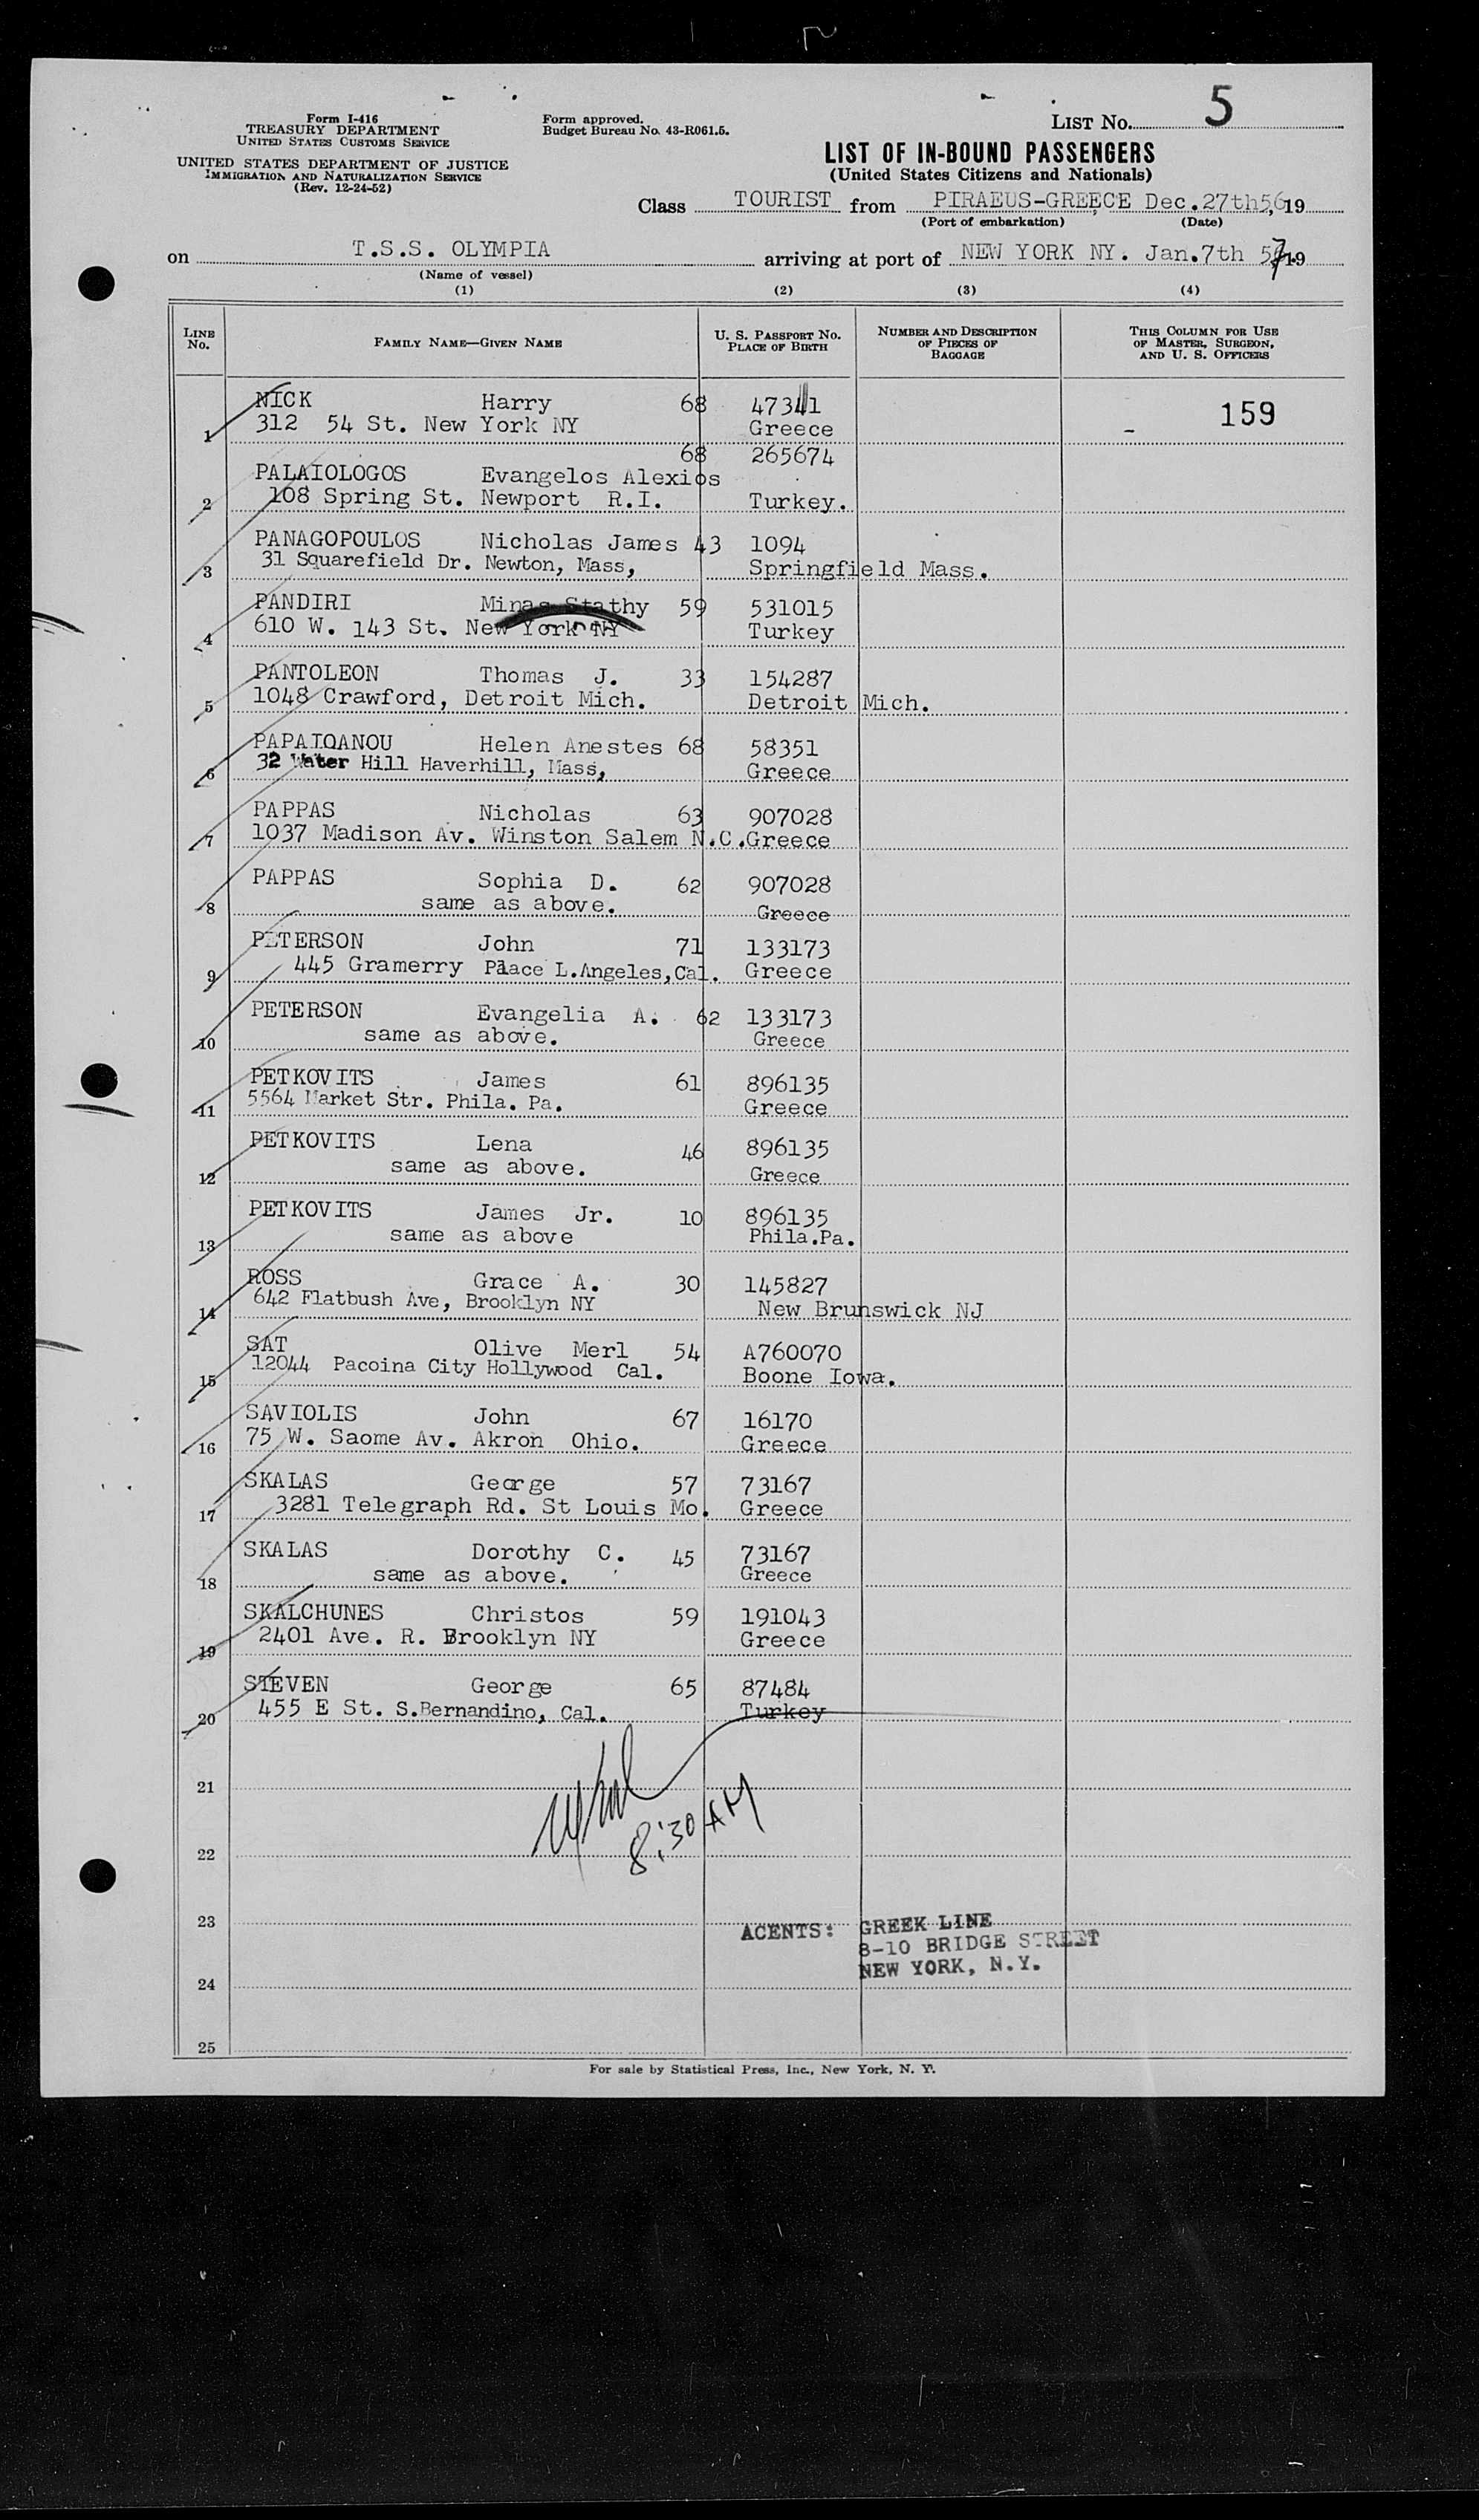 Form I-416
TREASURY DEPARTMENT
UNITED STATES CUSTOMS SERVICE
UNITED STATES DEPARTMENT OF JUSTICE
IMMIGRATION AND NATURALIZATION SERVICE
(Rev. 12-24-52)
Form approved.
Budget Bureau No. 43-R061.5.
LIST No. 5
LIST OF IN-BOUND PASSENGERS
(United States Citizens and Nationals)
Class TOURIST from PIRAEUS-GREECE Dec.27th56, 19
(Port of embarkation) (Date)
on T.S.S. OLYMPIA arriving at port of NEW YORK NY. Jan.7th 57 19
(Name of vessel)
(1) (2) (3) (4)
LINE No. FAMILY NAME—GIVEN NAME U. S. PASSPORT No. PLACE OF BIRTH NUMBER AND DESCRIPTION OF PIECES OF BAGGAGE THIS COLUMN FOR USE OF MASTER, SURGEON, AND U. S. OFFICERS
NICK Harry 68 47341 159
1 312 54 St. New York NY Greece
68 265674
PALAIOLOGOS Evangelos Alexios
2 108 Spring St. Newport R.I. Turkey.
PANAGOPOULOS Nicholas James 43 1094
3 31 Squarefield Dr. Newton, Mass, Springfield Mass.
PANDIRI Minas Stathy 59 531015
4 610 W. 143 St. New York NY Turkey
PANTOLEON Thomas J. 33 154287
5 1048 Crawford, Detroit Mich. Detroit Mich.
PAPAIOANOU Helen Anestes 68 58351
6 32 Water Hill Haverhill, Mass, Greece
PAPPAS Nicholas 63 907028
7 1037 Madison Av. Winston Salem N.C. Greece
PAPPAS Sophia D. 62 907028
8 same as above. Greece
PETERSON John 71 133173
9 445 Gramerry Place L.Angeles,Cal. Greece
PETERSON Evangelia A. 62 133173
10 same as above. Greece
PETKOVITS James 61 896135
11 5564 Market Str. Phila. Pa. Greece
PETKOVITS Lena 46 896135
12 same as above. Greece
PETKOVITS James Jr. 10 896135
13 same as above Phila.Pa.
ROSS Grace A. 30 145827
14 642 Flatbush Ave, Brooklyn NY New Brunswick NJ
SAT Olive Merl 54 A760070
15 12044 Pacoina City Hollywood Cal. Boone Iowa.
SAVIOLIS John 67 16170
16 75 W. Saome Av. Akron Ohio. Greece
SKALAS George 57 73167
17 3281 Telegraph Rd. St Louis Mo. Greece
SKALAS Dorothy C. 45 73167
18 same as above. Greece
SKALCHUNES Christos 59 191043
19 2401 Ave. R. Brooklyn NY Greece
STEVEN George 65 87484
20 455 E St. S.Bernandino, Cal. Turkey
21
8:30 AM
22
23 AGENTS: GREEK LINE
8-10 BRIDGE STREET
NEW YORK, N.Y.
24
25
For sale by Statistical Press, Inc., New York, N. Y.